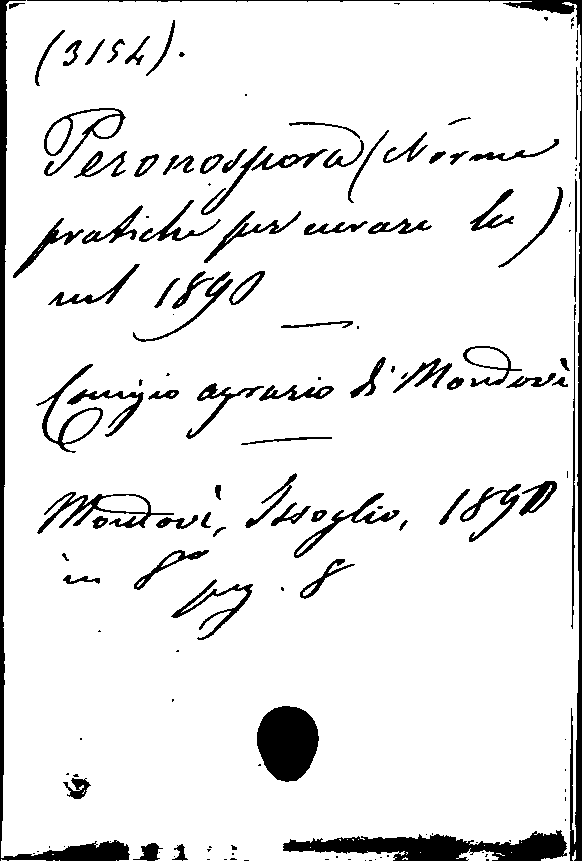 (3154).
Peronospora (Norme
pratiche per curare la)
nel 1890
Comizio agrario di Mondovì
Mondovì, Issoglio, 1890
in 8º pag. 8